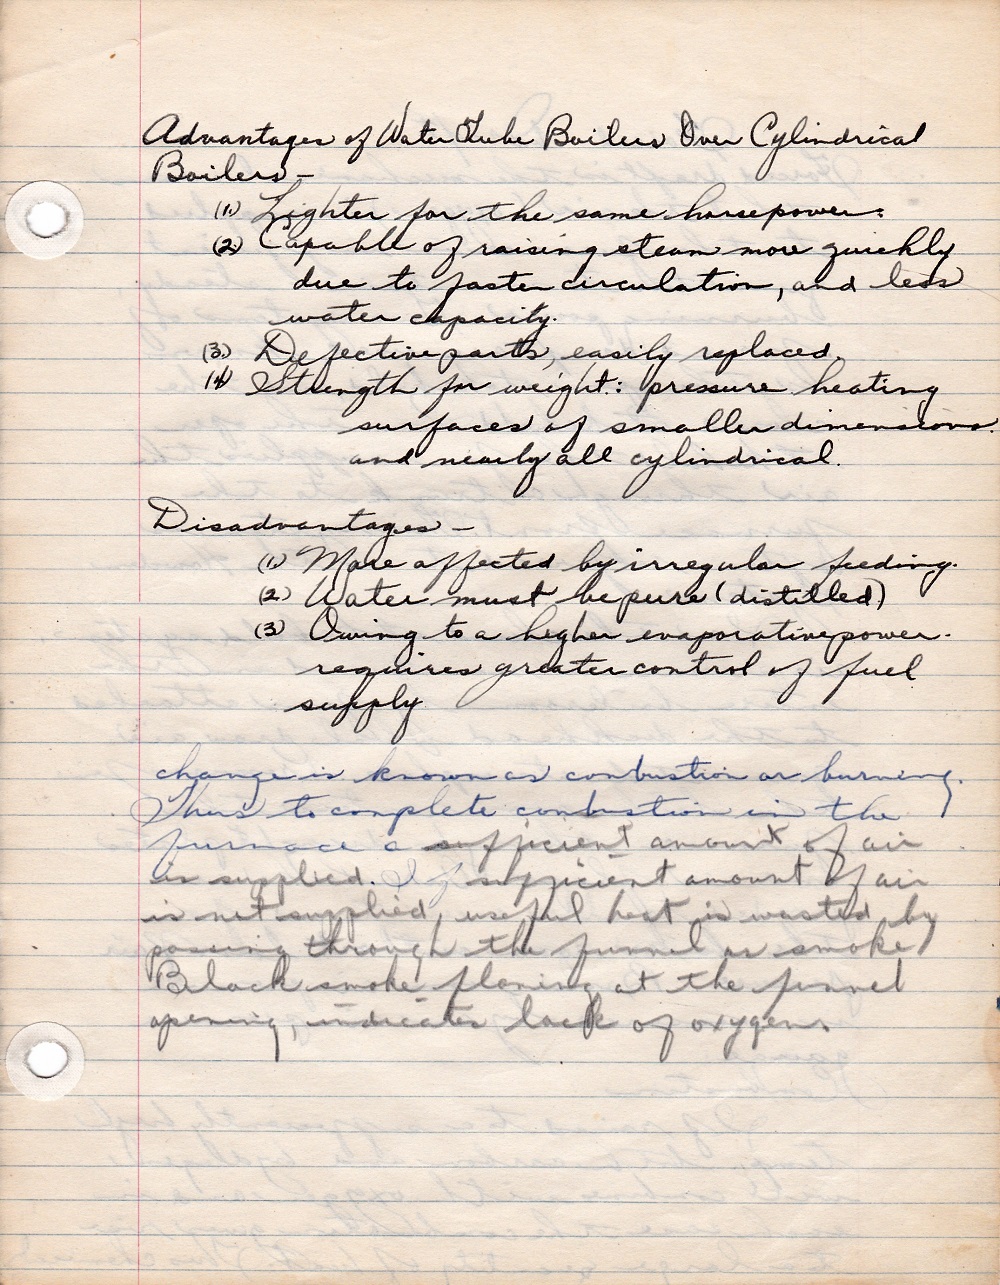 Advantages of Water Tube Boilers Over Cylindrical
Boilers –
(1.) Lighter for the same horsepower.
(2) Capable of raising steam more quickly
due to faster circulation, and less
water capacity.
(3.) Defective parts, easily replaced.
(4) Strength for weight: pressure heating
surfaces of smaller dimensions
and nearly all cylindrical.
Disadvantages –
(1.) More affected by irregular feeding.
(2.) Water must be pure (distilled)
(3) Owing to a higher evaporative power
requires greater control of fuel
supply
change is known as combustion or burning.
Thus to complete combustion in the
furnace a sufficient amount of air
is supplied. If sufficient amount of air
is not supplied, useful heat is wasted by
passing through the funnel as smoke
Black smoke flaming at the funnel
opening, indicates lack of oxygen.